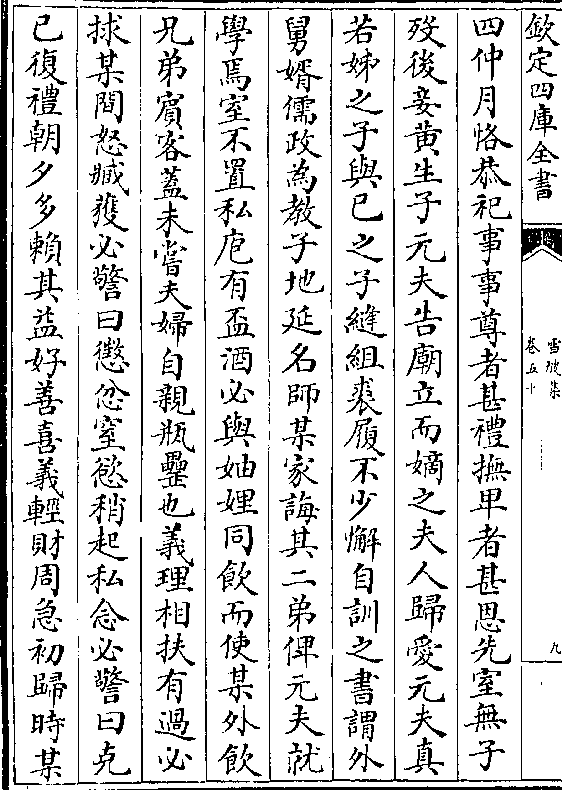 欽定四庫全書
雪坡集
卷五十
九
四仲月恪恭祀事事尊者甚禮撫卑者甚恩先室無子
歿後妾黄生子元夫告廟立而嫡之夫人歸愛元夫真
若姊之子與已之子縫組裘履不少懈自訓之書謂外
舅婿儒政為教子地延名師某家誨其二弟俾元夫就
學焉室不置私庖有盃酒必與妯娌同飲而使某外飲
兄弟賓客蓋未嘗夫婦自親瓶罍也義理相扶有過必
捄某間怒臧獲必警曰懲忿窒慾稍起私念必警曰克
已復禮朝夕多賴其益好善喜義輕財周急初歸時某